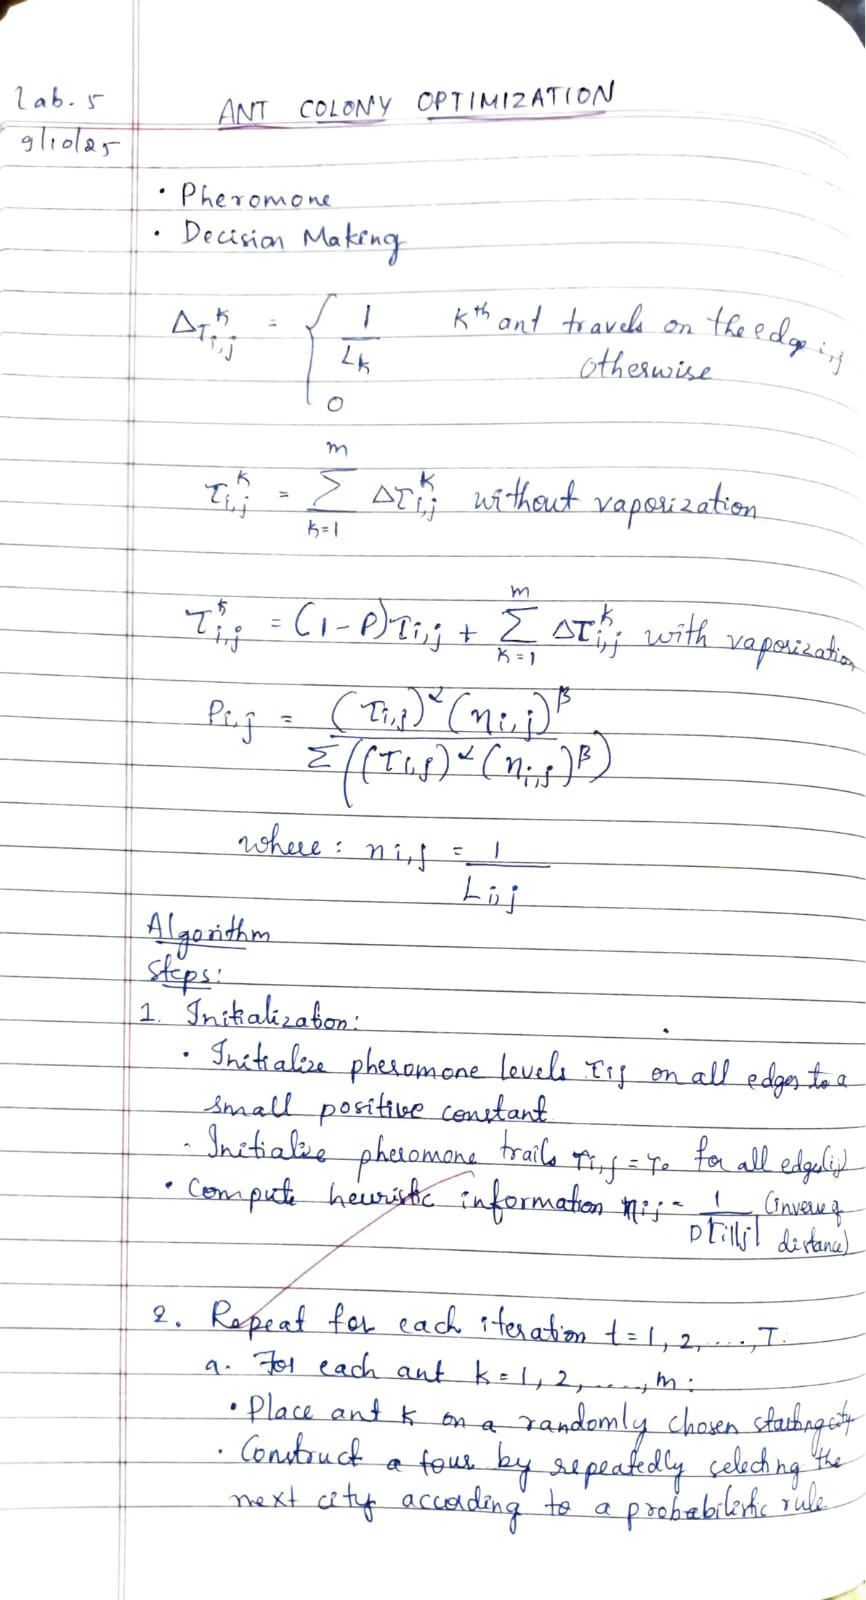 Lab. 5
9/10/25
ANT COLONY OPTIMIZATION
• Pheromone
• Decision Making
Δτ^k_{i,j} = { 1/L_k   K^th ant travels on the edge i,j
0   otherwise
τ^k_{i,j} = Σ_{k=1}^{m} Δτ^k_{i,j} without vaporization
τ^k_{i,j} = (1-ρ)τ_{i,j} + Σ_{k=1}^{m} Δτ^k_{i,j} with vaporization
P_{i,j} = (τ_{i,j})^α (η_{i,j})^β / Σ((τ_{i,j})^α (η_{i,j})^β)
where : η_{i,j} = 1/L_{i,j}
Algorithm
Steps:
1. Initialization:
• Initialize pheromone levels τij on all edges to a
small positive constant
- Initialize pheromone trails τ_{i,j} = τ_0 for all edge(i,j)
• Compute heuristic information η_{ij} = 1/D[i][j] (inverse of distance)
2. Repeat for each iteration t = 1, 2, ..., T.
a. For each ant k = 1, 2, ...., m:
• Place ant k on a randomly chosen starting city
• Construct a tour by repeatedly selecting the
next city according to a probabilistic rule